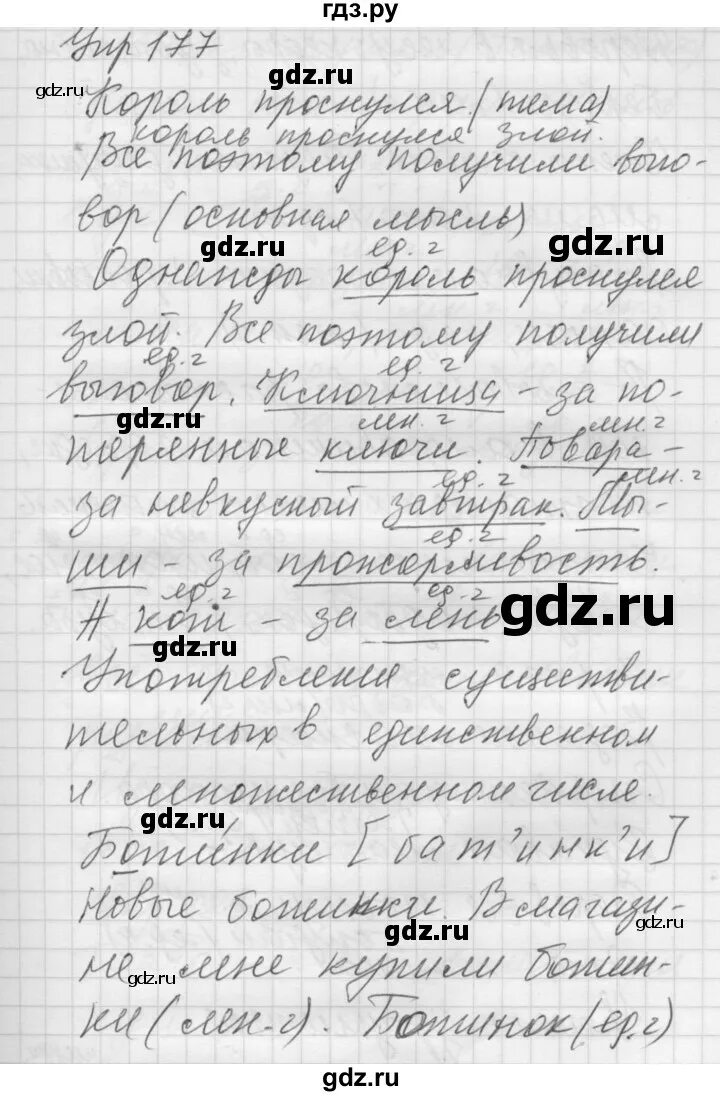 гдз.ру
Упр 177
gdz.ru
gdz.ru
Король проснулся (тема)
король проснулся злой.
Все поэтому получили выго-
вор (основная мысль)
gdz.ru
gdz.ru
ед. ч
Однажды король проснулся
злой. Все поэтому получили
ед. ч
ед. ч
gdz.ru
выговор. Ключница - за по-
gdz.ru
мн. ч
мн. ч
терянные ключи. Повара -
ед. ч
мн. ч
за невкусный завтрак. Мы-
ед. ч
ши - за прожорливость.
ед. ч
ед. ч
А кот - за лень
gdz.ru
gdz.ru
Употребления существи-
тельных в единственном
и множественном числе.
gdz.ru
Ботинки [бат'инк'и]
Новые ботинки. В магази-
gdz.ru
gdz.ru
не мне купили ботин-
gdz.ru
ки (мн. ч). Ботинок (ед. ч)
gdz.ru
gdz.ru